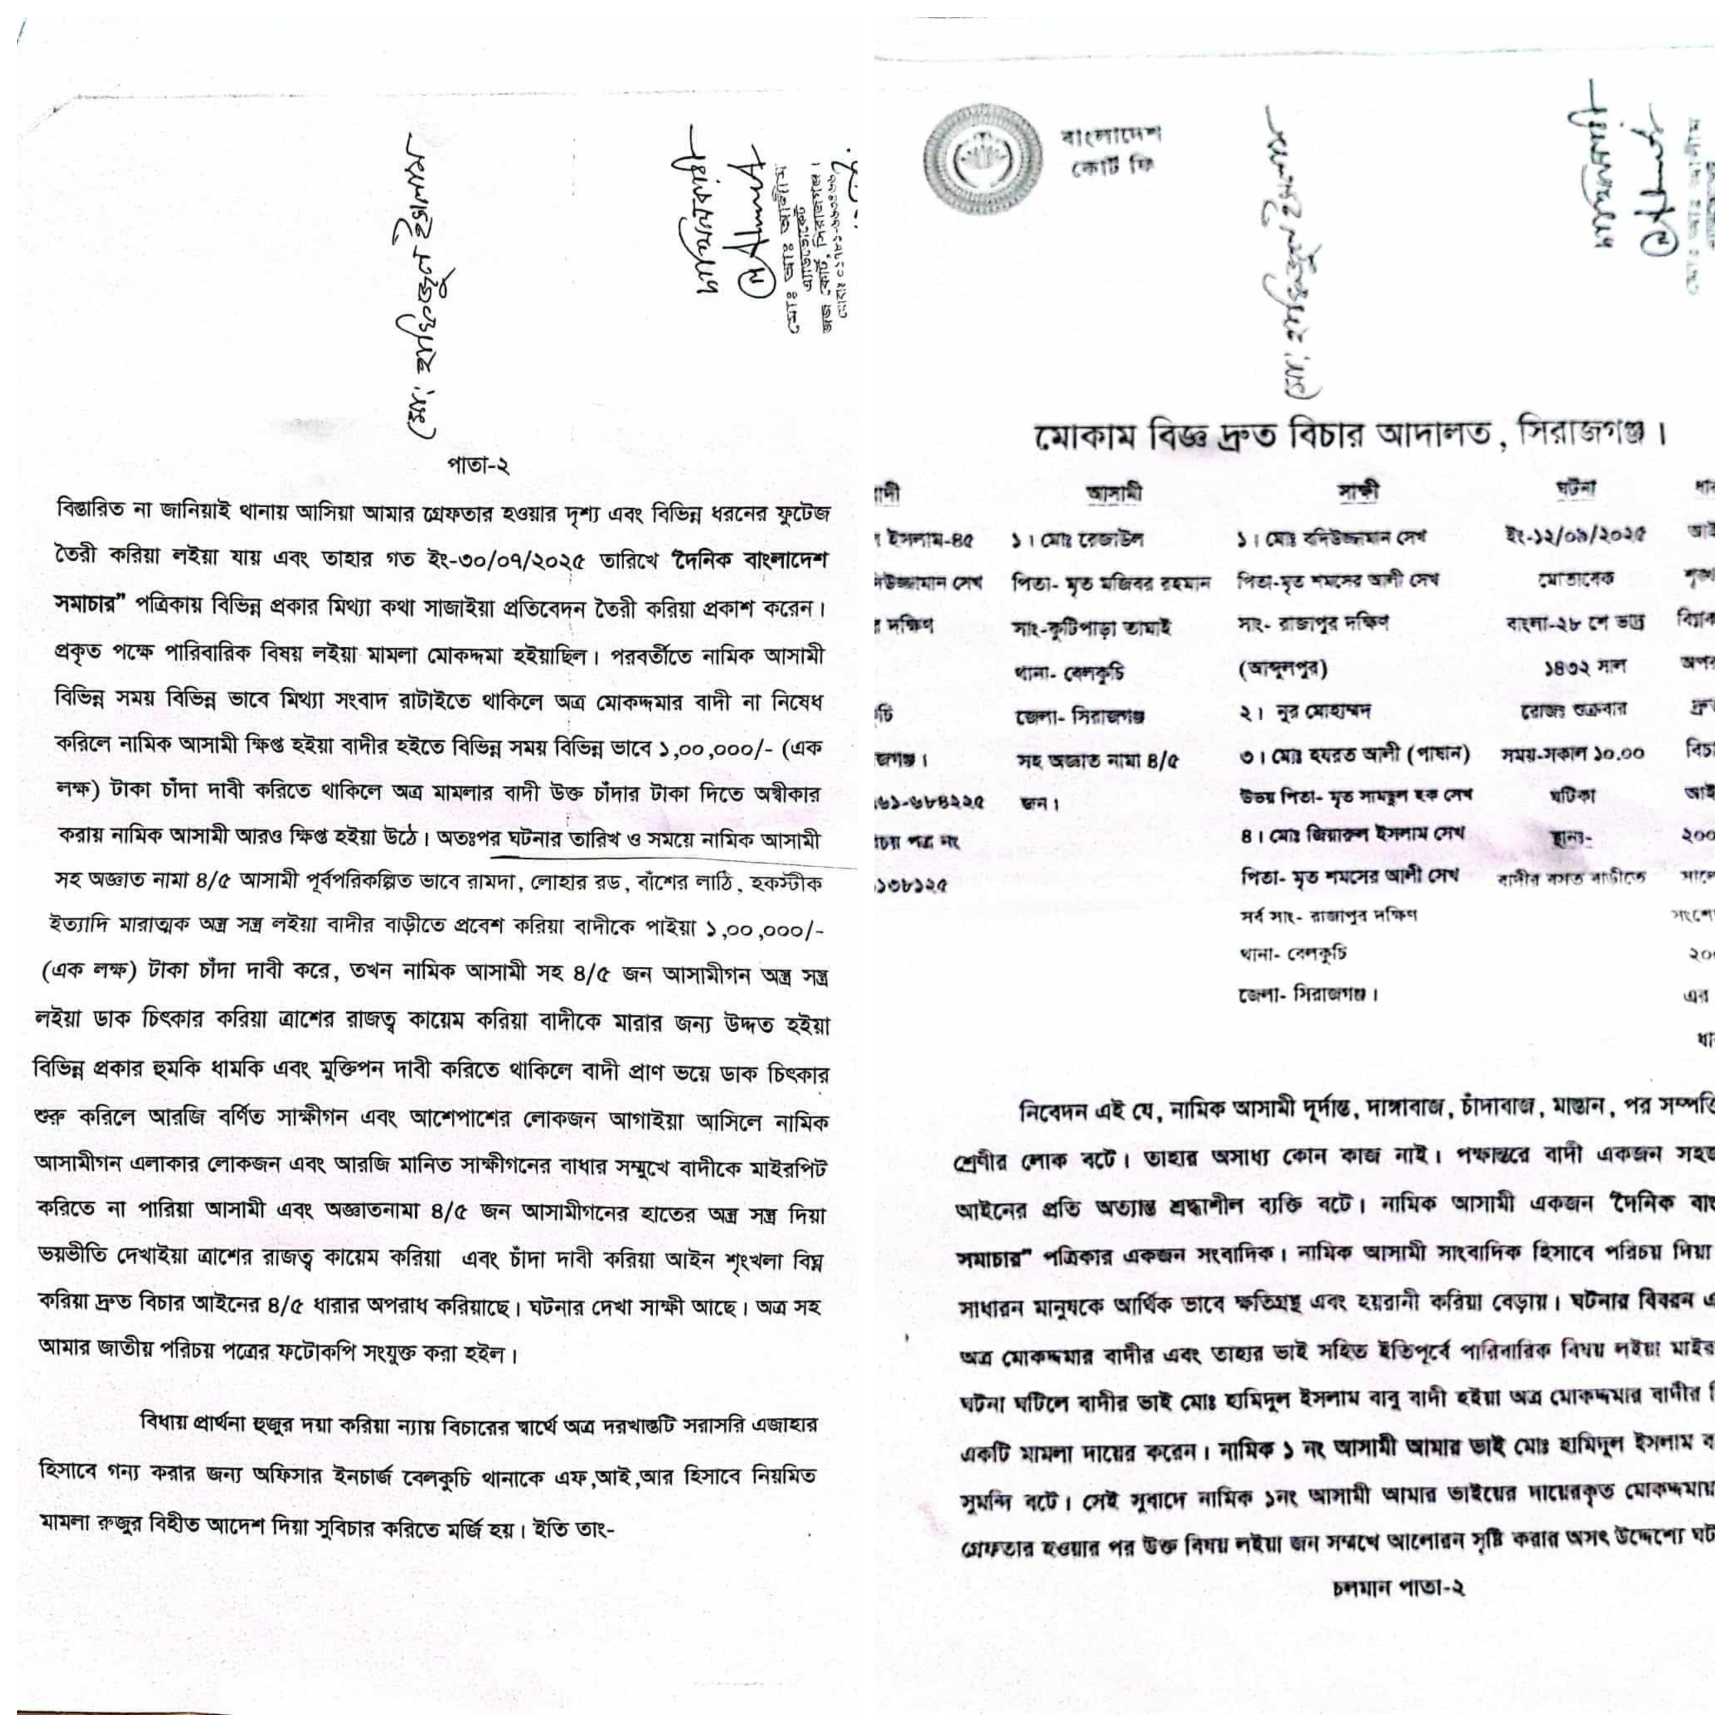 মোঃ হাফিজুল ইসলাম
পাতা-২
বিস্তারিত না জানিয়াই থানায় আসিয়া আমার গ্রেফতার হওয়ার দৃশ্য এবং বিভিন্ন ধরনের ফুটেজ
তৈরী করিয়া লইয়া যায় এবং তাহার গত ইং-৩০/০৭/২০২৫ তারিখে "দৈনিক বাংলাদেশ
সমাচার" পত্রিকায় বিভিন্ন প্রকার মিথ্যা কথা সাজাইয়া প্রতিবেদন তৈরী করিয়া প্রকাশ করেন।
প্রকৃত পক্ষে পারিবারিক বিষয় লইয়া মামলা মোকদ্দমা হইয়াছিল। পরবর্তীতে নামিক আসামী
বিভিন্ন সময় বিভিন্ন ভাবে মিথ্যা সংবাদ রাটাইতে থাকিলে অত্র মোকদ্দমার বাদী না নিষেধ
করিলে নামিক আসামী ক্ষিপ্ত হইয়া বাদীর হইতে বিভিন্ন সময় বিভিন্ন ভাবে ১,০০,০০০/- (এক
লক্ষ) টাকা চাঁদা দাবী করিতে থাকিলে অত্র মামলার বাদী উক্ত চাঁদার টাকা দিতে অস্বীকার
করায় নামিক আসামী আরও ক্ষিপ্ত হইয়া উঠে। অতঃপর ঘটনার তারিখ ও সময়ে নামিক আসামী
সহ অজ্ঞাত নামা ৪/৫ আসামী পূর্বপরিকল্পিত ভাবে রামদা, লোহার রড, বাঁশের লাঠি, হকস্টীক
ইত্যাদি মারাত্মক অস্ত্র সস্ত্র লইয়া বাদীর বাড়ীতে প্রবেশ করিয়া বাদীকে পাইয়া ১,০০,০০০/-
(এক লক্ষ) টাকা চাঁদা দাবী করে, তখন নামিক আসামী সহ ৪/৫ জন আসামীগন অস্ত্র সস্ত্র
লইয়া ডাক চিৎকার করিয়া ত্রাশের রাজত্ব কায়েম করিয়া বাদীকে মারার জন্য উদ্দত হইয়া
বিভিন্ন প্রকার হুমকি ধামকি এবং মুক্তিপন দাবী করিতে থাকিলে বাদী প্রাণ ভয়ে ডাক চিৎকার
শুরু করিলে আরজি বর্ণিত সাক্ষীগন এবং আশেপাশের লোকজন আগাইয়া আসিলে নামিক
আসামীগন এলাকার লোকজন এবং আরজি মানিত সাক্ষীগনের বাধার সম্মুখে বাদীকে মাইরপিট
করিতে না পারিয়া আসামী এবং অজ্ঞাতনামা ৪/৫ জন আসামীগনের হাতের অস্ত্র সস্ত্র দিয়া
ভয়ভীতি দেখাইয়া ত্রাশের রাজত্ব কায়েম করিয়া এবং চাঁদা দাবী করিয়া আইন শৃংখলা বিঘ্ন
করিয়া দ্রুত বিচার আইনের ৪/৫ ধারার অপরাধ করিয়াছে। ঘটনার দেখা সাক্ষী আছে। অত্র সহ
আমার জাতীয় পরিচয় পত্রের ফটোকপি সংযুক্ত করা হইল।
বিধায় প্রার্থনা হুজুর দয়া করিয়া ন্যায় বিচারের স্বার্থে অত্র দরখাস্তটি সরাসরি এজাহার
হিসাবে গন্য করার জন্য অফিসার ইনচার্জ বেলকুচি থানাকে এফ,আই,আর হিসাবে নিয়মিত
মামলা রুজুর বিহীত আদেশ দিয়া সুবিচার করিতে মর্জি হয়। ইতি তাং-
বাংলাদেশ
কোর্ট ফি
মোকাম বিজ্ঞ দ্রুত বিচার আদালত, সিরাজগঞ্জ।
আসামী সাক্ষী ঘটনা
ইসলাম-৪৫ ১। মোঃ রেজাউল ১। মোঃ বদিউজ্জামান সেখ ইং-১২/০৯/২০২৫
পিতা- মৃত মজিবর রহমান পিতা-মৃত শমসের আলী সেখ মোতাবেক
দক্ষিণ সাং-কুটিপাড়া তামাই সাং- রাজাপুর দক্ষিণ বাংলা-২৮ শে ভাদ্র
থানা- বেলকুচি (আব্দুলপুর) ১৪৩২ সাল
জেলা- সিরাজগঞ্জ ২। নুর মোহাম্মদ রোজঃ শুক্রবার
সহ অজ্ঞাত নামা ৪/৫ ৩। মোঃ হযরত আলী (পাষান) সময়-সকাল ১০.০০
জন। উভয় পিতা- মৃত সামছুল হক সেখ ঘটিকা
পত্র নং ৪। মোঃ জিয়ারুল ইসলাম সেখ স্থানঃ-
পিতা- মৃত শমসের আলী সেখ বাদীর বসত বাড়ীতে
সর্ব সাং- রাজাপুর দক্ষিণ
থানা- বেলকুচি
জেলা- সিরাজগঞ্জ।
নিবেদন এই যে, নামিক আসামী দূর্দান্ত, দাঙ্গাবাজ, চাঁদাবাজ, মাস্তান, পর সম্পত্তি
শ্রেণীর লোক বটে। তাহার অসাধ্য কোন কাজ নাই। পক্ষান্তরে বাদী একজন
আইনের প্রতি অত্যান্ত শ্রদ্ধাশীল ব্যক্তি বটে। নামিক আসামী একজন "দৈনিক
সমাচার" পত্রিকার একজন সংবাদিক। নামিক আসামী সাংবাদিক হিসাবে পরিচয় দিয়া
সাধারন মানুষকে আর্থিক ভাবে ক্ষতিগ্রস্থ এবং হয়রানী করিয়া বেড়ায়। ঘটনার বিবরন
অত্র মোকদ্দমার বাদীর এবং তাহার ভাই সহিত ইতিপূর্বে পারিবারিক বিষয় লইয়া
ঘটনা ঘটিলে বাদীর ভাই মোঃ হামিদুল ইসলাম বাবু বাদী হইয়া অত্র মোকদ্দমার বাদীর
একটি মামলা দায়ের করেন। নামিক ১ নং আসামী আমার ভাই মোঃ হামিদুল ইসলাম
সুমন্দি বটে। সেই সুবাদে নামিক ১নং আসামী আমার ভাইয়ের দায়েরকৃত মোকদ্দমায়
গ্রেফতার হওয়ার পর উক্ত বিষয় লইয়া জন সম্মখে আলোরন সৃষ্টি করার অসৎ উদ্দেশ্যে
চলমান পাতা-২